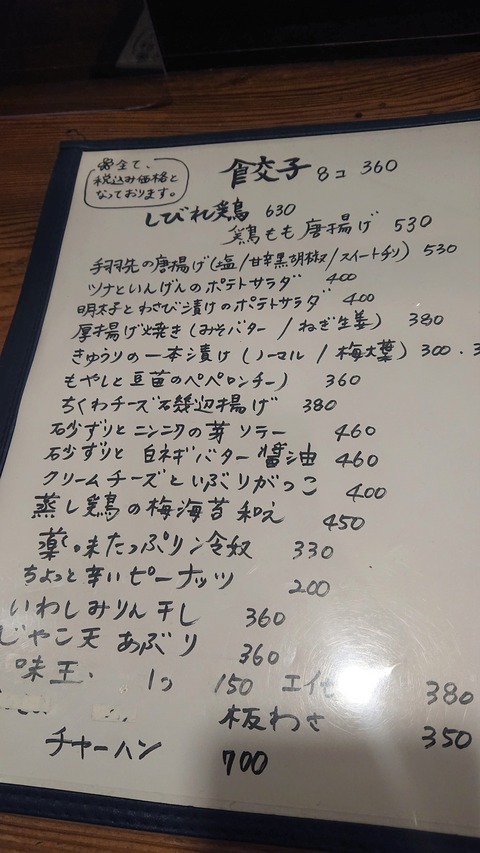 ※全て、
税込み価格と
なっております。
餃子 8コ 360
しびれ鶏 630
鶏もも唐揚げ 530
手羽先の唐揚げ(塩/甘辛黒胡椒/スイートチリ) 530
ツナといんげんのポテトサラダ 400
明太子とわさび漬けのポテトサラダ 400
厚揚げ焼き(みそバター/ねぎ生姜) 380
きゅうりの一本漬け(ノーマル/梅大葉) 300・3
もやしと豆苗のペペロンチーノ 360
ちくわチーズ磯辺揚げ 380
砂ずりとニンニクの芽ソテー 460
砂ずりと白ネギバター醤油 460
クリームチーズといぶりがっこ 400
蒸し鶏の梅海苔和え 450
薬味たっぷりン冷奴 330
ちょっと辛いピーナッツ 200
いわしみりん干し 360
じゃこ天あぶり 360
味玉 1コ 150 エイヒ 380
板わさ 350
チャーハン 700